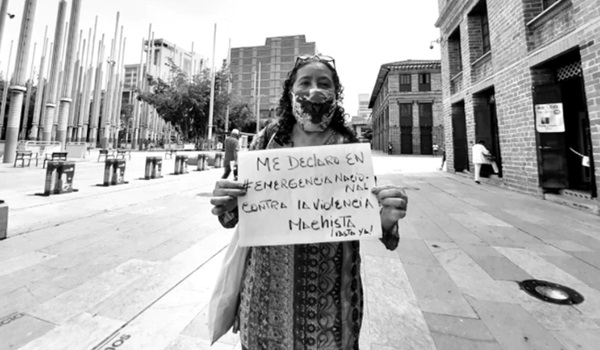 ME DECLARO EN
#EMERGENCIA NACIO-
NAL
CONTRA LA VIOLENCIA
MACHISTA
¡BASTA YA!